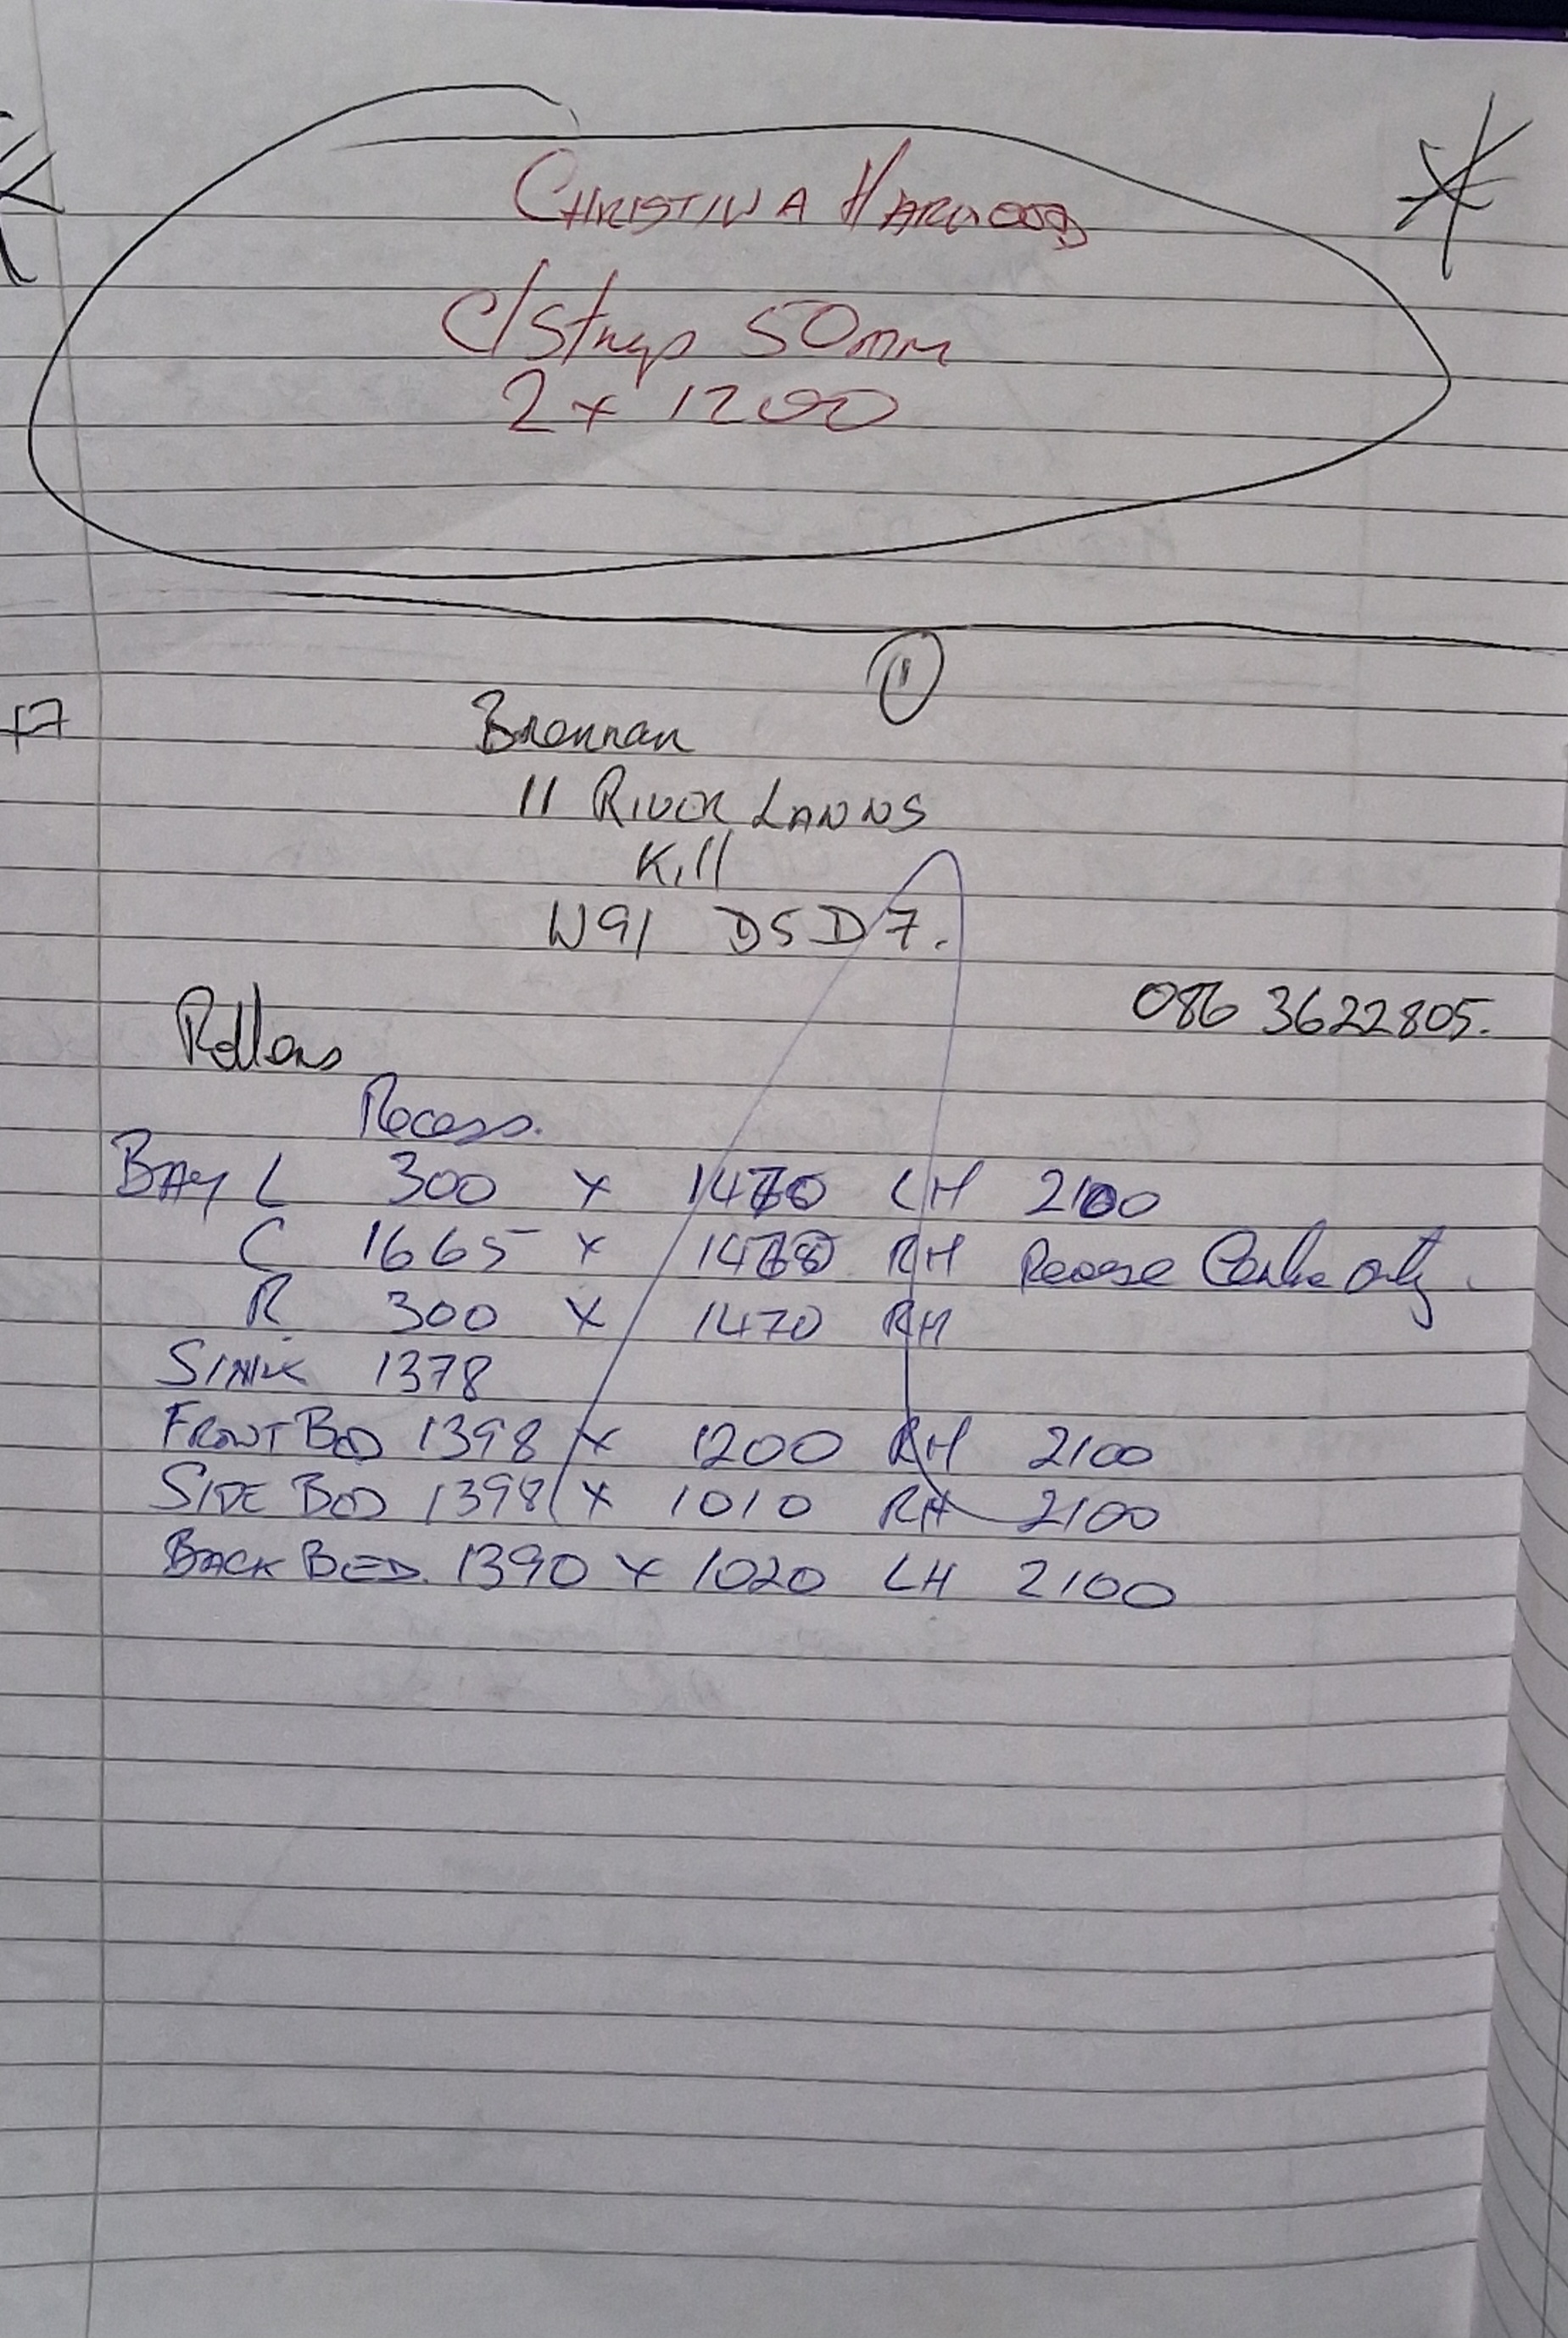 CHRISTINA HARWOOD
c/strips 50mm
2 x 1200
11
+7
Brennan
11 RIVER LAWNS
Kill
W91 D5D7.
086 3622805.
Rollers
Recess.
BAY L 300 x 1470 LH 2100
C 1665 x RH Centre only.
R 300 x 1470 RH
SINK 1378
FRONT BED 1398 x 1200 RH 2100
SIDE BED 1398 x 1010 RH 2100
BACK BED. 1390 x 1020 LH 2100